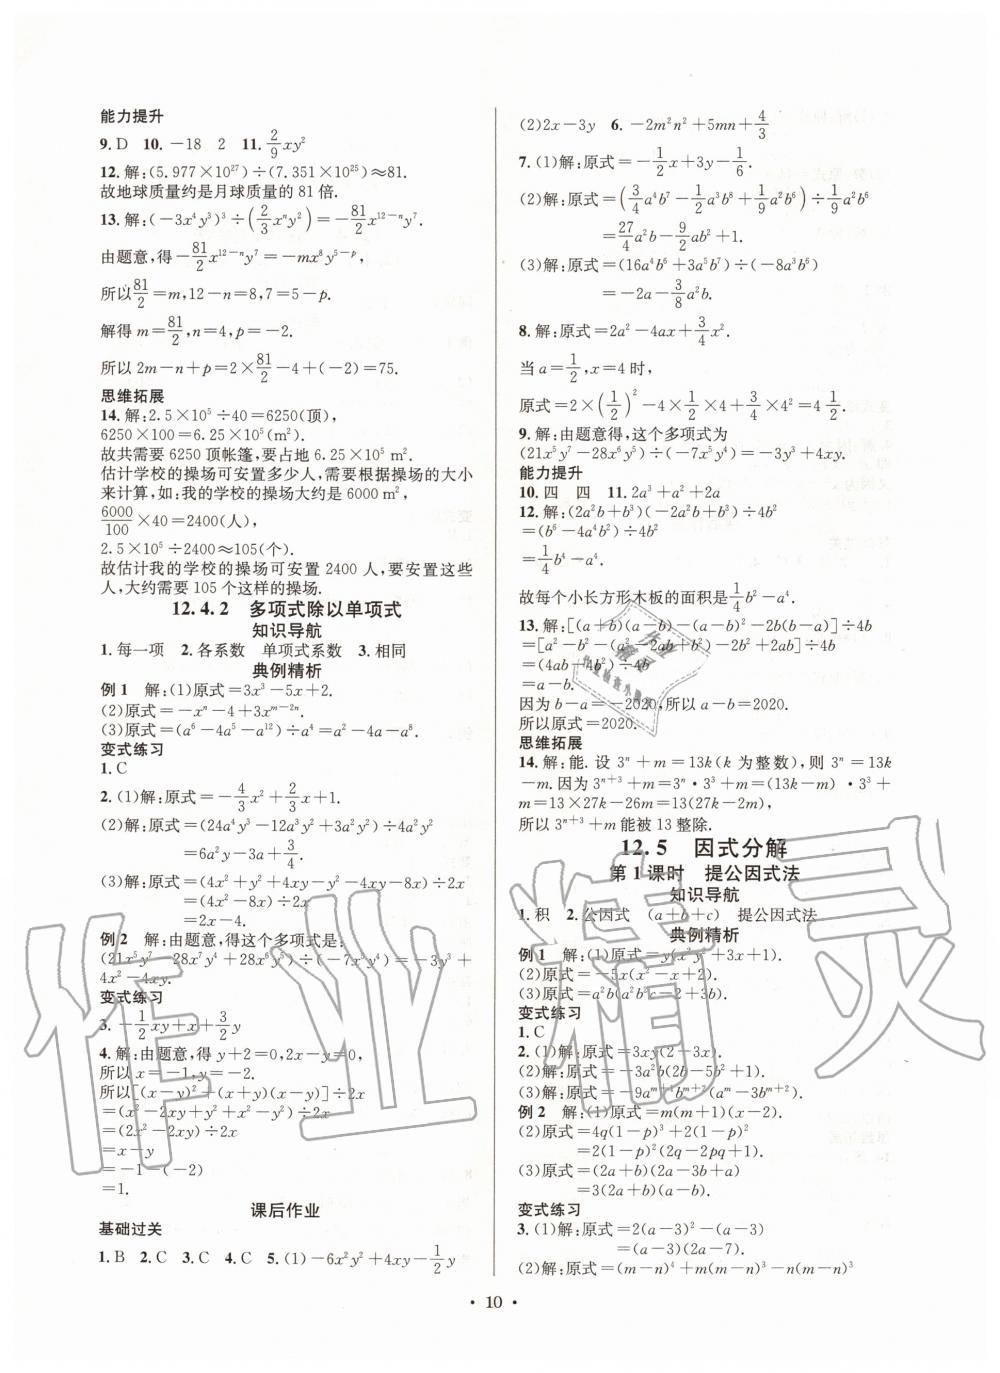 能力提升
9. D  10. －18  2  11. 2/9xy²
12. 解:(5.977×10²⁷)÷(7.351×10²⁵)≈81.
故地球质量约是月球质量的 81 倍.
13. 解:(－3x⁴y³)³÷(2/3xⁿy²)＝－81/2x¹²⁻ⁿy⁷.
由题意,得－81/2x¹²⁻ⁿy⁷＝－mx⁸y⁵⁻ᵖ,
所以81/2＝m,12－n＝8,7＝5－p.
解得 m＝81/2,n＝4,p＝－2.
所以 2m－n＋p＝2×81/2－4＋(－2)＝75.
思维拓展
14. 解:2.5×10⁵÷40＝6250(顶),
6250×100＝6.25×10⁵(m²).
故共需要 6250 顶帐篷,要占地 6.25×10⁵ m².
估计学校的操场可安置多少人,需要根据操场的大小
来计算,如:我的学校的操场大约是 6000 m²,
6000/100×40＝2400(人),
2.5×10⁵÷2400≈105(个).
故估计我的学校的操场可安置 2400 人,要安置这些
人,大约需要 105 个这样的操场.
12.4.2  多项式除以单项式
知识导航
1. 每一项  2. 各系数  单项式系数  3. 相同
典例精析
例 1  解:(1)原式＝3x³－5x＋2.
(2)原式＝－xⁿ－4＋3xᵐ⁻²ⁿ.
(3)原式＝(a⁶－4a⁵－a¹²)÷a⁴＝a²－4a－a⁸.
变式练习
1. C
2. (1)解:原式＝－4/3x²＋2/3x＋1.
(2)解:原式＝(24a⁴y³－12a³y²＋3a²y²)÷4a²y²
＝6a²y－3a＋3/4.
(3)解:原式＝(4x²＋y²＋4xy－y²－4xy－8x)÷2x
＝(4x²－8x)÷2x
＝2x－4.
例 2  解:由题意,得这个多项式是:
(21x⁵y⁷－28x⁷y⁴＋28x⁶y⁵)÷(－7x⁵y⁴)＝－3y³＋
4x²－4xy.
变式练习
3. －1/2xy＋x＋3/2y
4. 解:由题意,得 y＋2＝0,2x－y＝0,
所以 x＝－1,y＝－2.
所以[(x－y)²＋(x＋y)(x－y)]÷2x
＝(x²－2xy＋y²＋x²－y²)÷2x
＝(2x²－2xy)÷2x
＝x－y
＝－1－(－2)
＝1.
课后作业
基础过关
1. B  2. C  3. C  4. C  5. (1)－6x²y²＋4xy－1/2y
(2)2x－3y  6. －2m²n²＋5mn＋4/3
7. (1)解:原式＝－1/2x＋3y－1/6.
(2)解:原式＝(3/4a⁴b⁷－1/2a³b⁸＋1/9a²b⁶)÷1/9a²b⁶
＝27/4a²b－9/2ab²＋1.
(3)解:原式＝(16a⁴b⁶＋3a⁵b⁷)÷(－8a³b⁶)
＝－2a－3/8a²b.
8. 解:原式＝2a²－4ax＋3/4x².
当 a＝1/2,x＝4 时,
原式＝2×(1/2)²－4×1/2×4＋3/4×4²＝4 1/2.
9. 解:由题意得,这个多项式为
(21x⁵y⁷－28x⁶y⁵)÷(－7x⁵y⁴)＝－3y³＋4xy.
能力提升
10. 四  四  11. 2a³＋a²＋2a
12. 解:(2a²b＋b³)(－2a²b＋b³)÷4b²
＝(b⁶－4a⁴b²)÷4b²
＝1/4b⁴－a⁴.
故每个小长方形木板的面积是1/4b²－a⁴.
13. 解:[(a＋b)(a－b)－(a－b)²－2b(b－a)]÷4b
＝[a²－b²－(a²－2ab＋b²)－2b²＋2ab]÷4b
＝(4ab－4b²)÷4b
＝a－b.
因为 b－a＝－2020,所以 a－b＝2020.
所以原式＝2020.
思维拓展
14. 解:能. 设 3ⁿ＋m＝13k(k 为整数), 则 3ⁿ＝13k
－m. 因为 3ⁿ⁺³＋m＝3ⁿ·3³＋m＝(13k－m)·3³＋
m＝13×27k－26m＝13(27k－2m),
所以 3ⁿ⁺³＋m 能被 13 整除.
12.5  因式分解
第 1 课时  提公因式法
知识导航
1. 积  2. 公因式  (a＋b＋c)  提公因式法
典例精析
例 1  解:(1)原式＝y(x²y²＋3x＋1).
(2)原式＝－5x(x²－x＋2).
(3)原式＝a²b(2a²b²c－2＋3b).
变式练习
1. C
2. (1)解:原式＝3xy(2－3x).
(2)解:原式＝－3a²b(2b－5b²＋1).
(3)解:原式＝－9aᵐ⁺¹bᵐ⁺²(aᵐ－3b).
例 2  解:(1)原式＝m(m＋1)(x－2).
(2)原式＝4q(1－p)³＋2(1－p)²
＝2(1－p)²(2q－2pq＋1).
(3)原式＝(2a＋b)(2a－3b＋a)
＝3(2a＋b)(a－b).
变式练习
3. (1)解:原式＝2(a－3)²－(a－3)
＝(a－3)(2a－7).
(2)解:原式＝(m－n)⁴＋m(m－n)³－n(m－n)³
· 10 ·
作业精灵